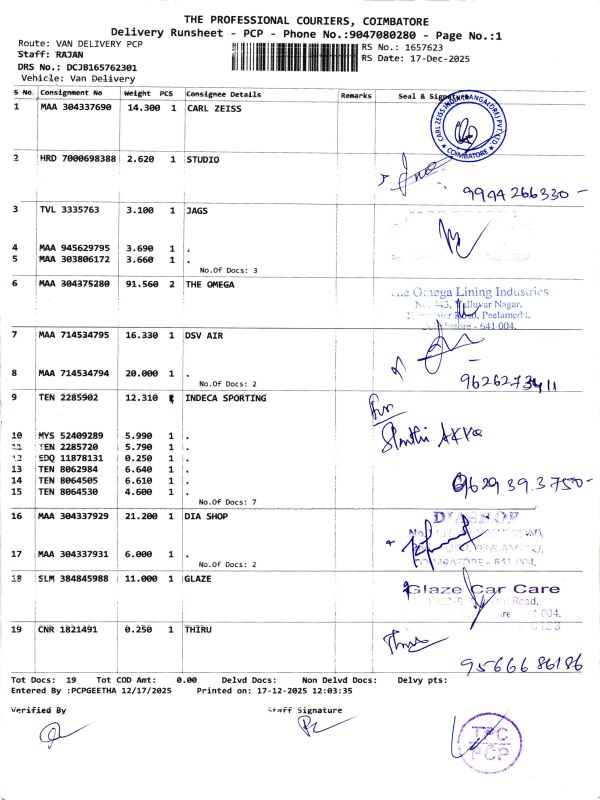 THE PROFESSIONAL COURIERS, COIMBATORE
Delivery Runsheet - PCP - Phone No.:9047080280 - Page No.:1
Route: VAN DELIVERY PCP
Staff: RAJAN
DRS No.: DCJB165762301
Vehicle: Van Delivery
RS No.: 1657623
RS Date: 17-Dec-2025
S No. Consignment No Weight PCS Consignee Details Remarks Seal & Signature
1 MAA 304337690 14.300 1 CARL ZEISS
COIMBATORE
2 HRD 7000698388 2.620 1 STUDIO
9994266330
3 TVL 3335763 3.100 1 JAGS
4 MAA 945629795 3.690 1 .
5 MAA 303806172 3.660 1 .
No.Of Docs: 3
6 MAA 304375280 91.560 2 THE OMEGA
The Omega Lining Industries
Nagar,
Peelamedu,
641 004.
7 MAA 714534795 16.330 1 DSV AIR
8 MAA 714534794 20.000 1 .
No.Of Docs: 2
9 TEN 2285902 12.310 INDECA SPORTING
10 MYS 52409289 5.990 1 .
11 TEN 2285720 5.790 1 .
12 EDQ 11878131 0.250 1 .
13 TEN 8062984 6.640 1 .
14 TEN 8064505 6.610 1 .
15 TEN 8064530 4.600 1 .
No.Of Docs: 7
9629393750
16 MAA 304337929 21.200 1 DIA SHOP
17 MAA 304337931 6.000 1 .
No.Of Docs: 2
18 SLM 384845988 11.000 1 GLAZE
Glaze Car Care
Road,
19 CNR 1821491 0.250 1 THIRU
9566686186
Tot Docs: 19 Tot COD Amt: 0.00 Delvd Docs: Non Delvd Docs: Delvy pts:
Entered By :PCPGEETHA 12/17/2025 Printed on: 17-12-2025 12:03:35
Verified By Staff Signature
TPC
PCP